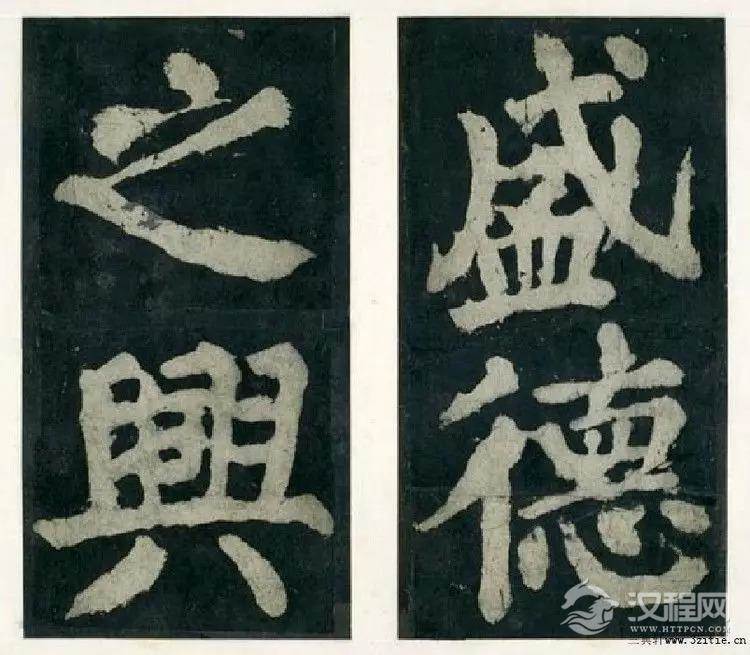 盛德
之興
汉程网
WWW.HTTPCN.COM
三與轩www.3zitie.cn